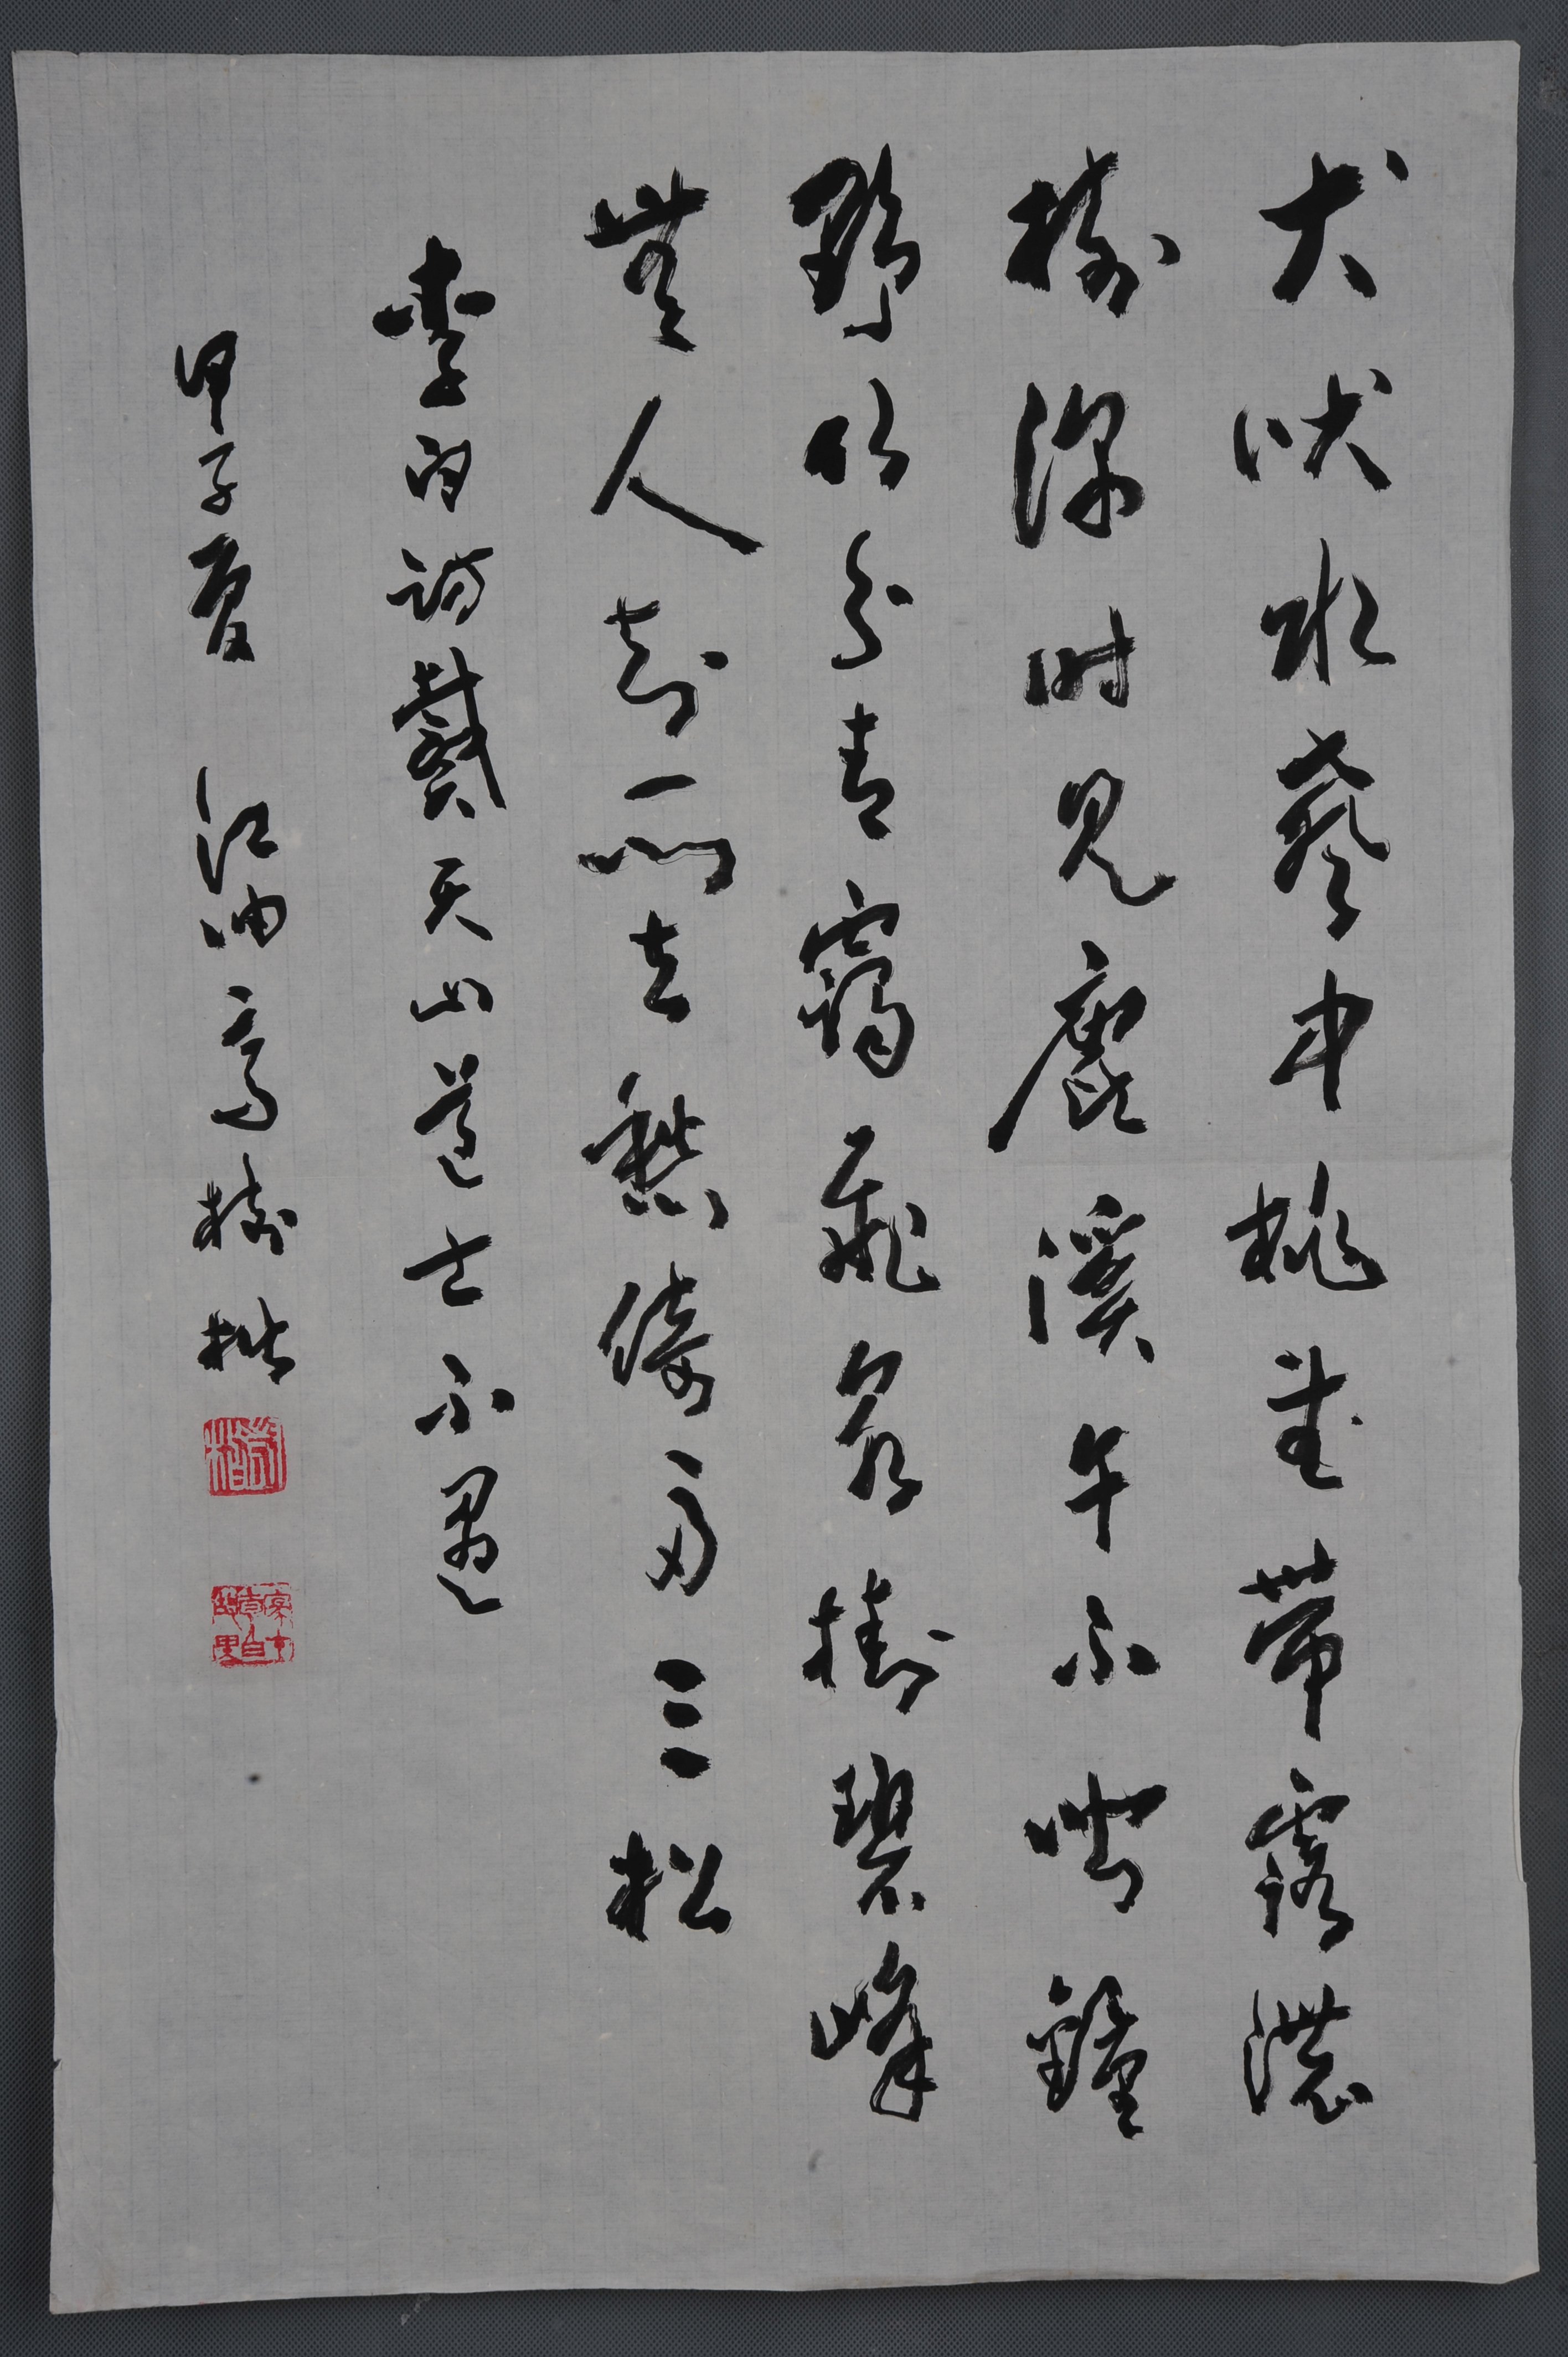 犬吠水聲中桃花帶露濃
樹深时見鹿溪午不聞鐘
野竹分青靄飛泉掛碧峰
無人知所去愁倚兩三松
李白訪戴天山道士不遇
甲子夏 江油高樹楷
樹楷